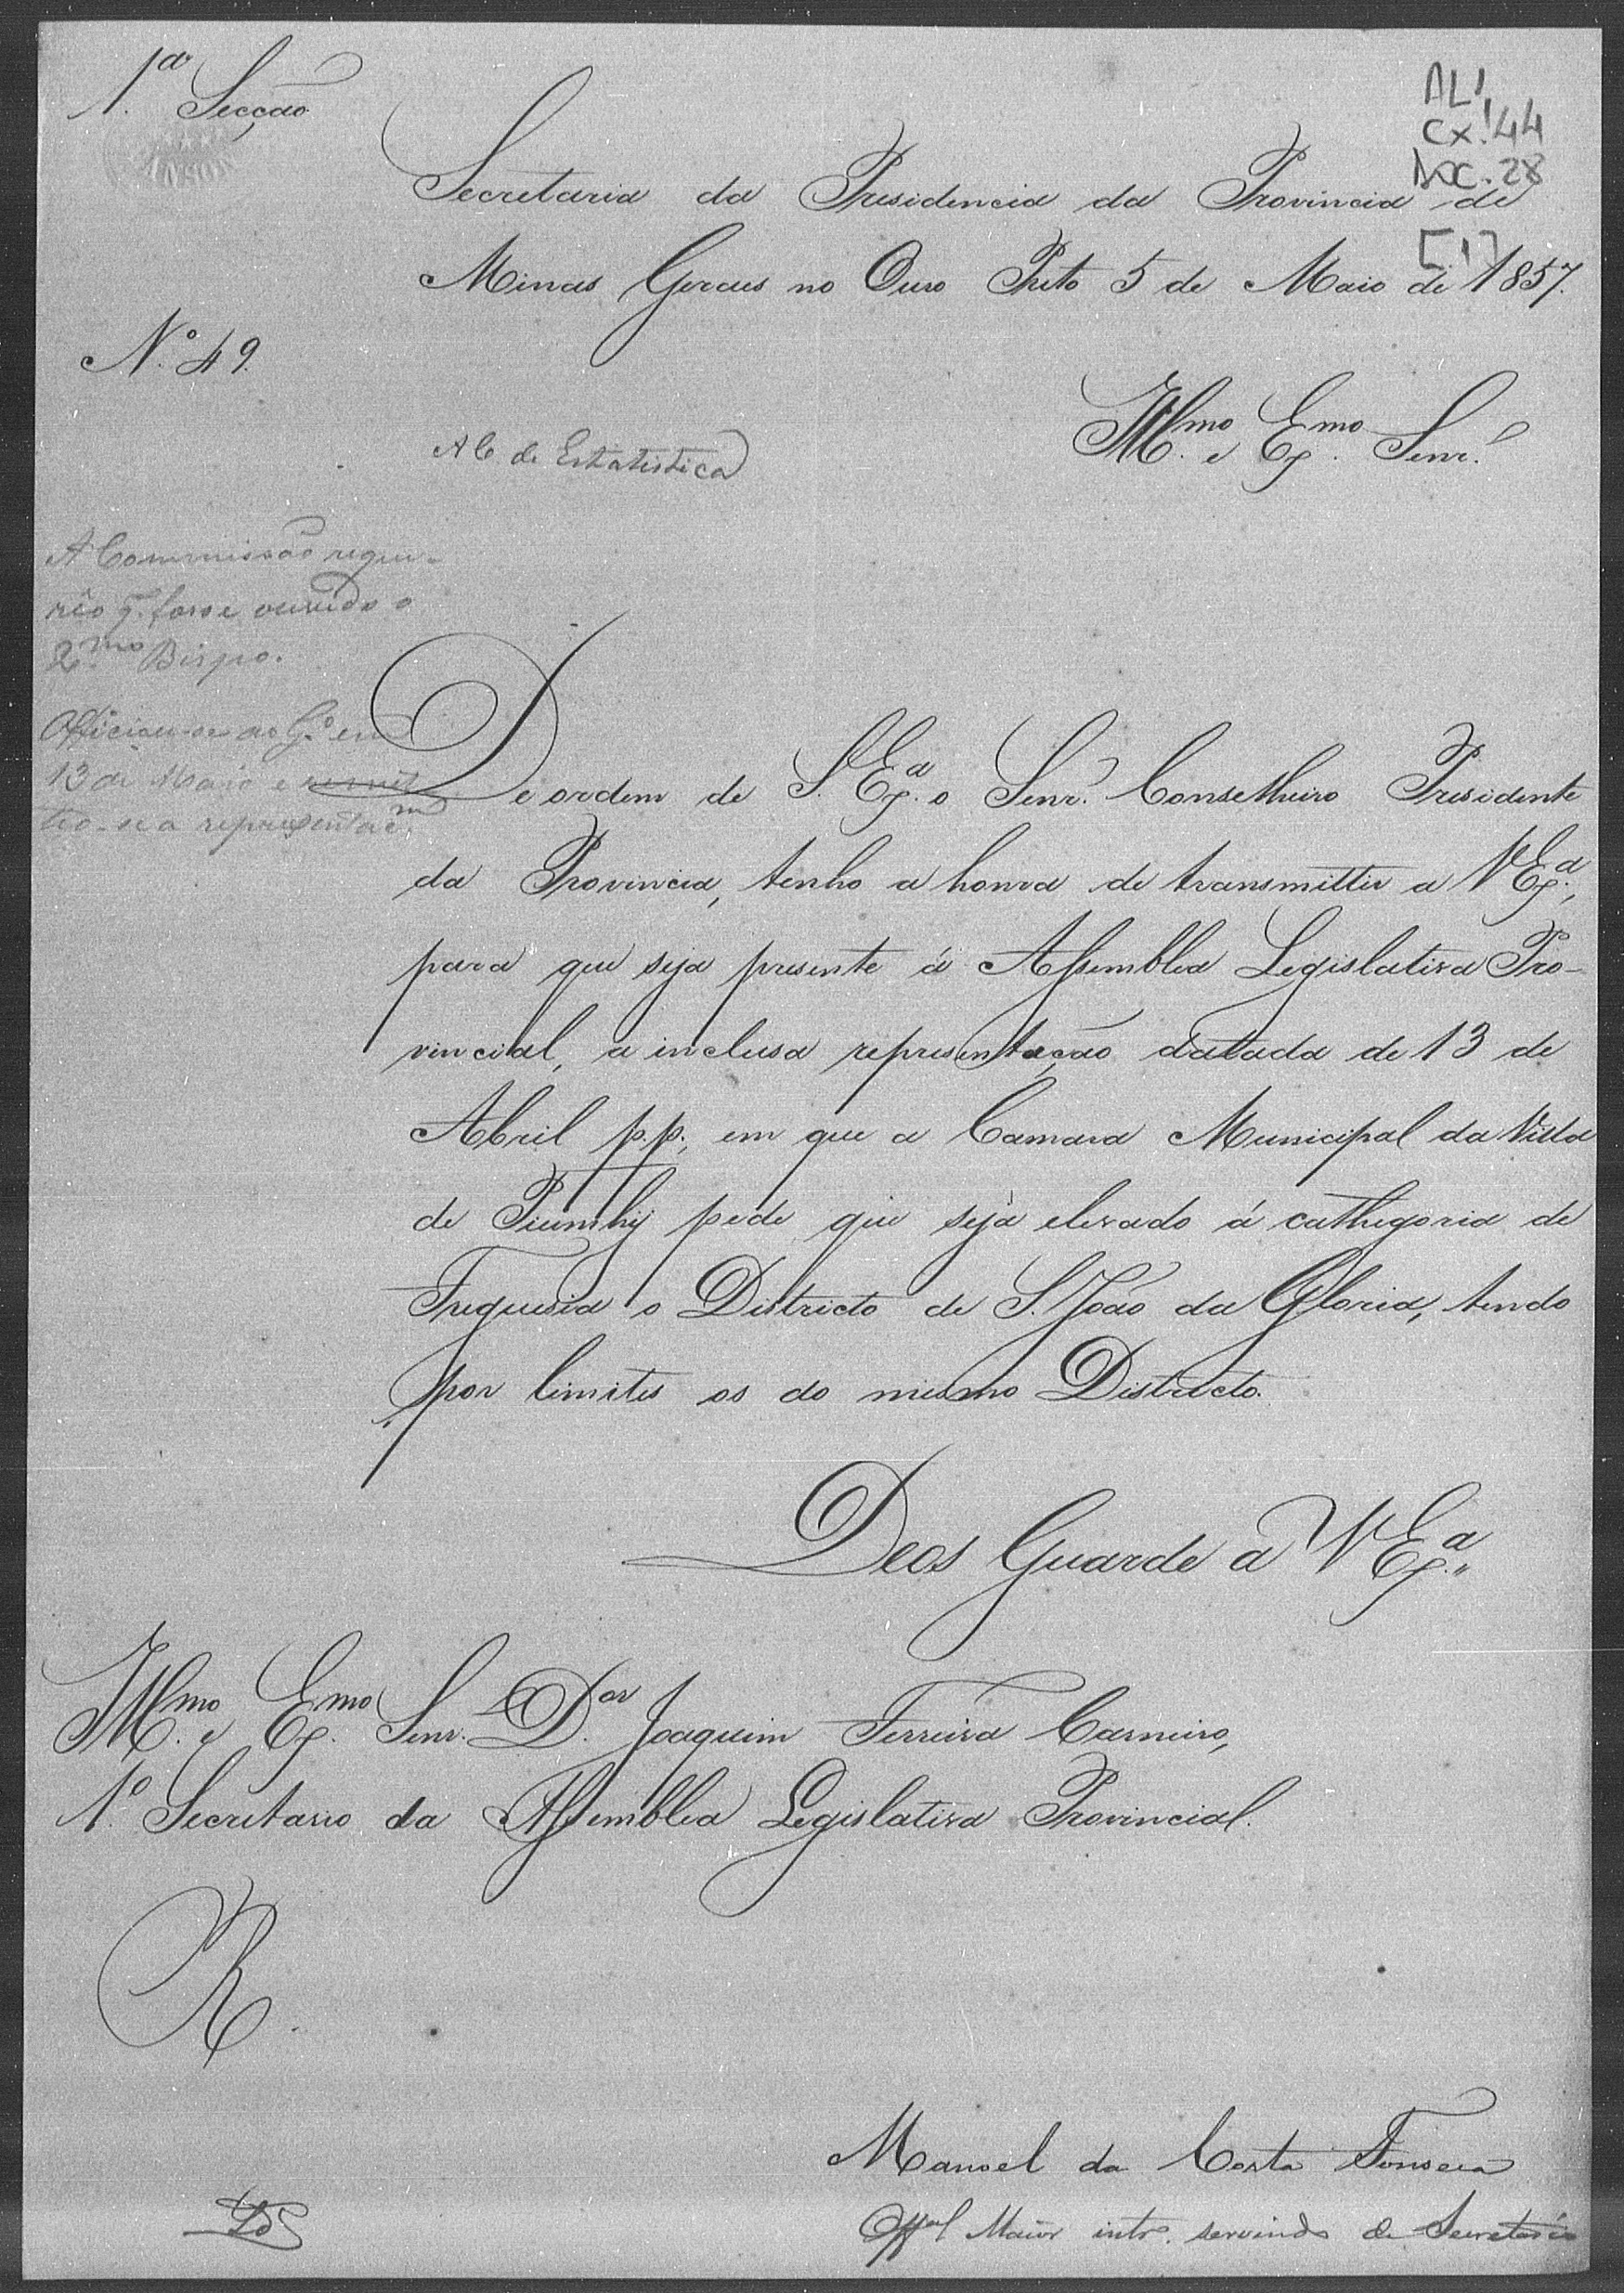 1.ª Secção
AL1
CX.144
DOC.28
[.1]
Secretaria da Presidencia da Provincia de
Minas Geraes no Ouro Preto 5 de Maio de 1857.
N.º 49.
Ill.mo e Ex.mo Senr.
A C. de Estatistica
A Commissão reque-
rêo q. fosse ouvido o
R.mo Bispo.
Officiou-se ao G.º em
13 de Maio e remet
teo-se a represent
De ordem de S. Ex.ª o Senr. Conselheiro Presidente
da Provincia, tenho a honra de transmittir a V Ex.ª,
para que seja presente á Assemblea Legislativa Pro-
vincial, a inclusa representação datada de 13 de
Abril p.p., em que a Camara Municipal da Villa
de Piumhÿ pede que seja elevado á cathegoria de
Freguesia o Districto de S. João da Gloria, tendo
por limites os do mesmo Districto.
Deos Guarde a V Ex.ª
Ill.mo e Ex.mo Senr. D.or Joaquim Ferreira Carneiro,
1.º Secretario da Assemblea Legislativa Provincial.
R.
Manoel da Costa Fonseca
Off.al Maior int.º servindo de Secretario